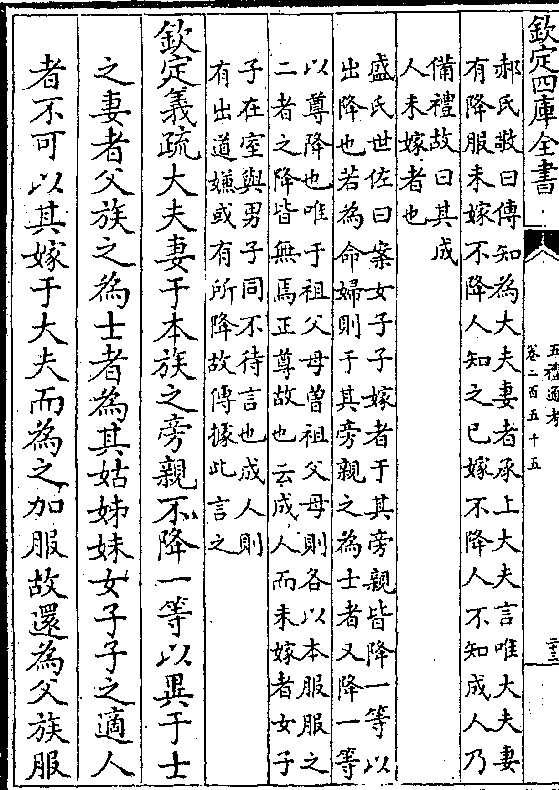 欽定四庫全書
五禮通考
卷二百五十五
二十三
郝氏敬曰傳知為大夫妻者承上大夫言唯大夫妻
有降服未嫁不降人知之已嫁不降人不知成人乃
備禮故曰其成
人未嫁者也
盛氏世佐曰案女子子嫁者于其旁親皆降一等以
出降也若為命婦則于其旁親之為士者又降一等
以尊降也唯于祖父母曾祖父母則各以本服服之
二者之降皆無焉正尊故也云成人而未嫁者女子
子在室與男子同不待言也成人則
有出道嫌或有所降故傳據此言之
欽定義疏大夫妻于本族之旁親不降一等以異于士
之妻者父族之為士者為其姑姊妹女子子之適人
者不可以其嫁于大夫而為之加服故還為父族服